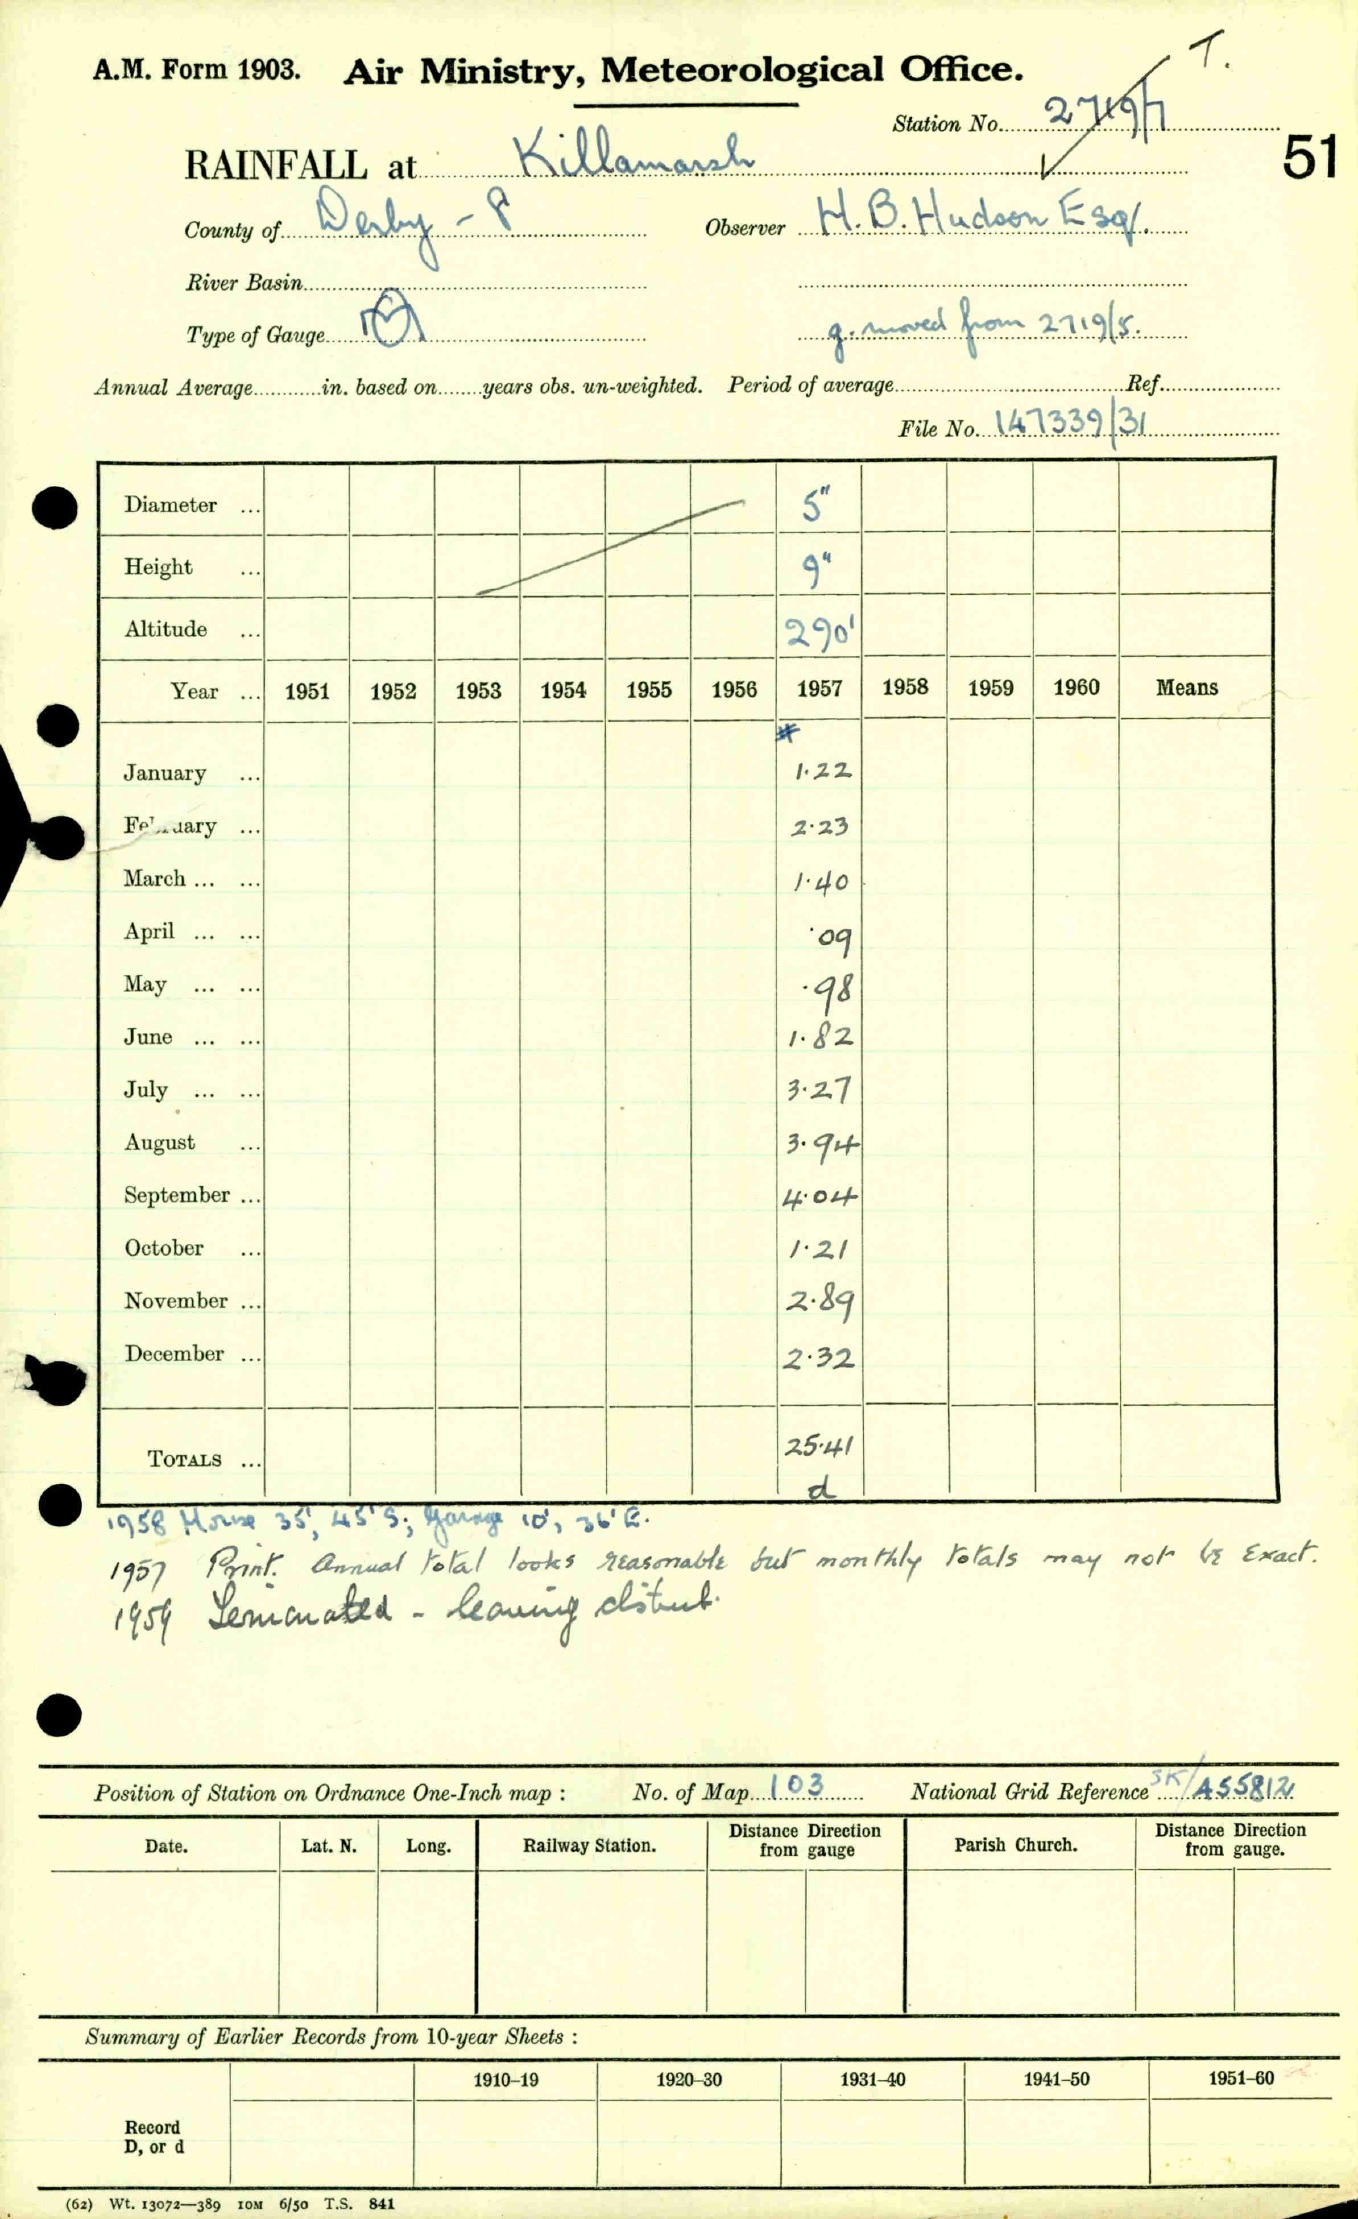 T.
A.M. Form 1903. Air Ministry, Meteorological Office.
Station No. 2719/7
RAINFALL at Killamarsh
51
County of Derby - P Observer H. B. Hudson Esq.
River Basin
Type of Gauge
g. moved from 2719/5.
Annual Average in. based on years obs. un-weighted. Period of average Ref.
File No. 147339/31
Diameter ... 5"
Height ... 9"
Altitude ... 290'
Year ... 1951 1952 1953 1954 1955 1956 1957 1958 1959 1960 Means
#
January ... 1.22
February ... 2.23
March ... ... 1.40
April ... ... .09
May ... ... .98
June ... ... 1.82
July ... ... 3.27
August ... 3.94
September ... 4.04
October ... 1.21
November ... 2.89
December ... 2.32
TOTALS ... 25.41
d
1958 House 35', 45' S; Garage 10', 36' E.
1957 Print. Annual total looks reasonable but monthly totals may not be exact.
1959 Terminated - leaving district.
Position of Station on Ordnance One-Inch map : No. of Map 103 National Grid Reference SK/455812
Date. Lat. N. Long. Railway Station. Distance Direction from gauge Parish Church. Distance Direction from gauge.
Summary of Earlier Records from 10-year Sheets :
1910–19 1920–30 1931–40 1941–50 1951–60
Record
D, or d
(62) Wt. 13072—389 10M 6/50 T.S. 841